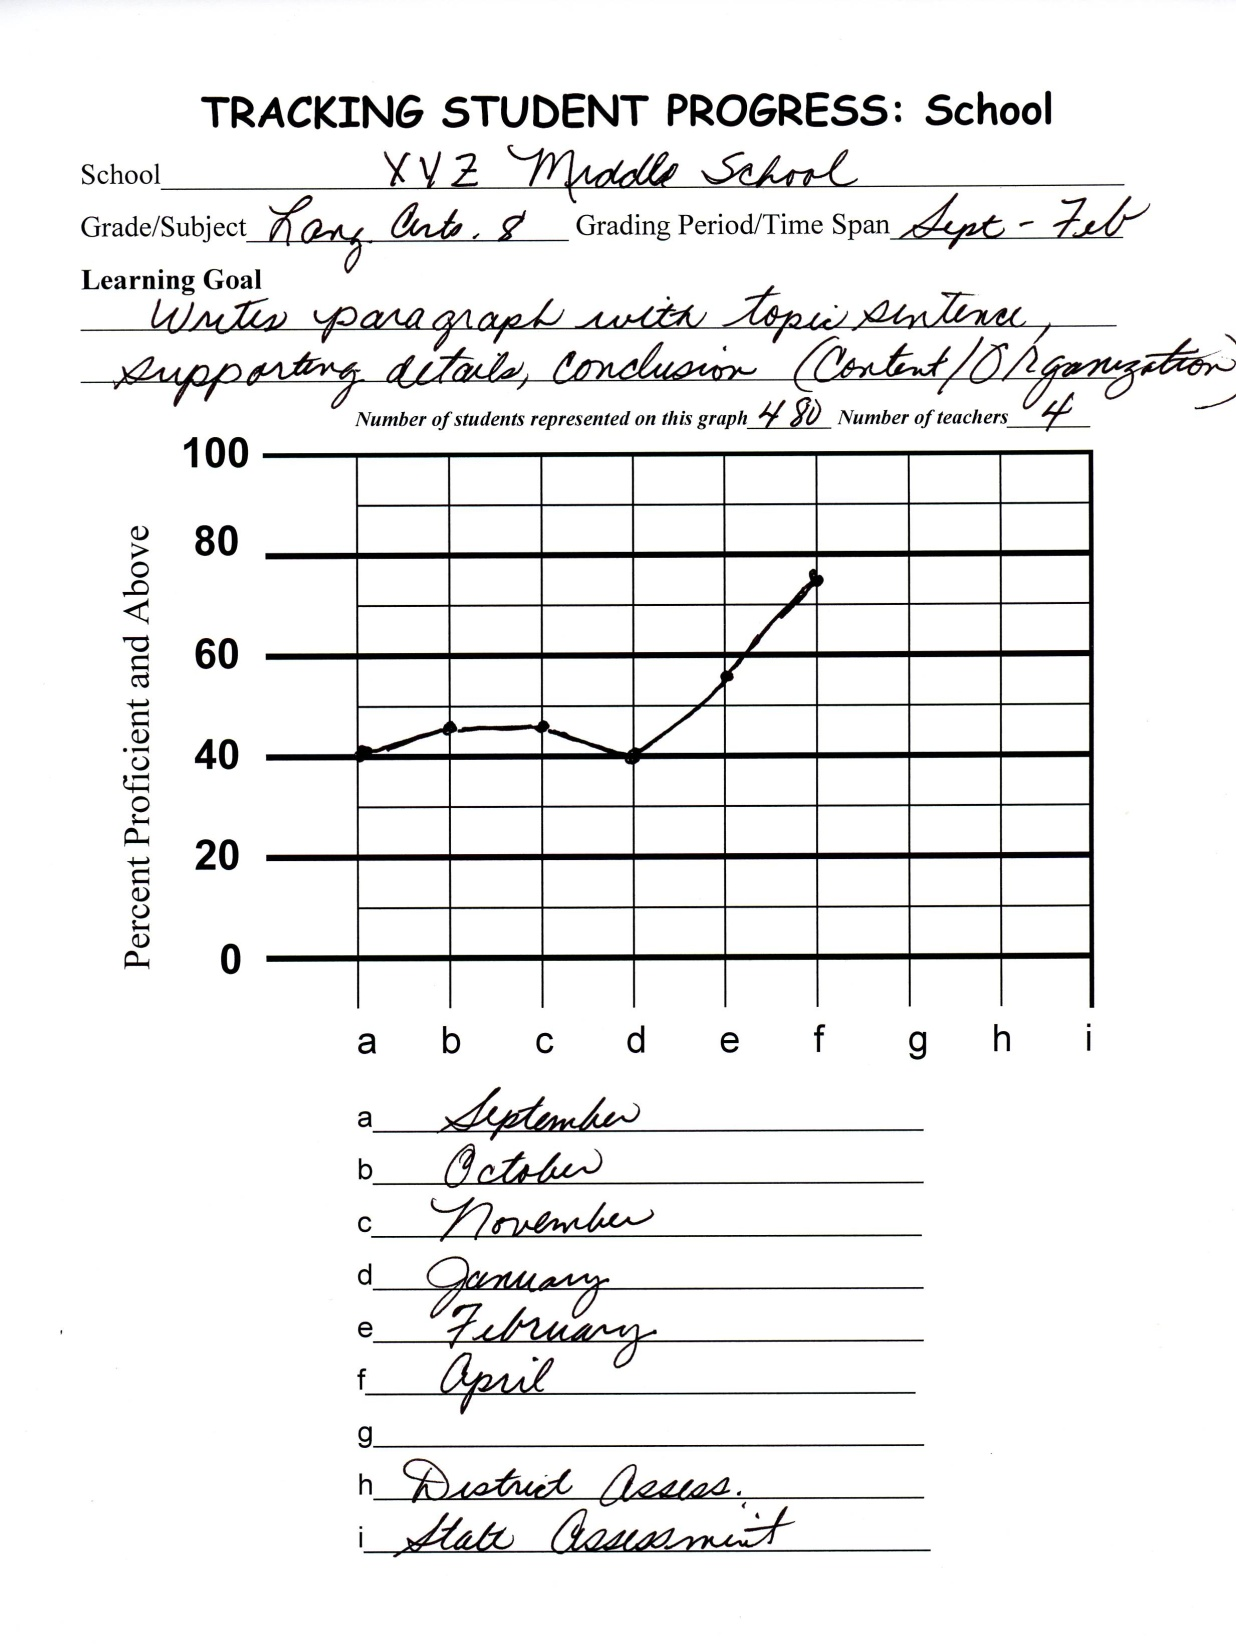 TRACKING STUDENT PROGRESS: School
School XYZ Middle School
Grade/Subject Lang Arts. 8 Grading Period/Time Span Sept - Feb
Learning Goal
Writes paragraph with topic sentence,
supporting details, conclusion (Content/Organization)
Number of students represented on this graph 480 Number of teachers 4
100
80
60
40
20
0
Percent Proficient and Above
a b c d e f g h i
a September
b October
c November
d January
e February
f April
g
h District Assess.
i State Assessment